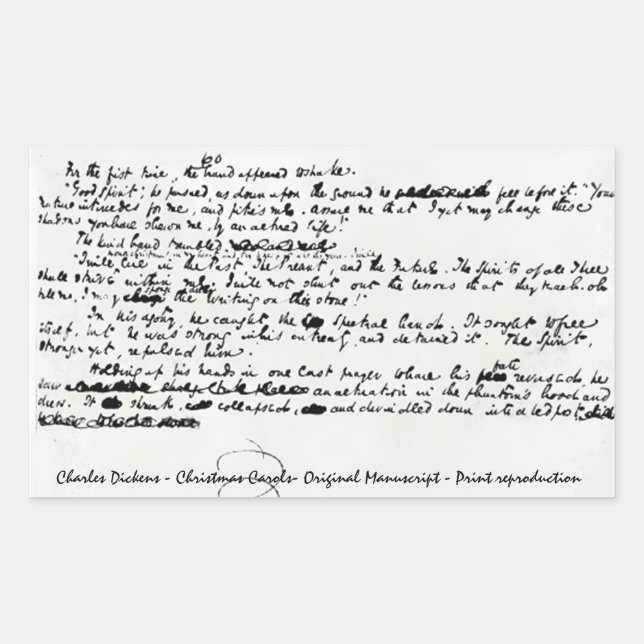 60
For the first time, the hand appeared to shake.
"Good Spirit", he pursued, as down upon the ground he fell before it. "Your
nature intercedes for me, and pities me. Assure me that I yet may change these
shadows you have shewn me, by an altered life!"
The kind hand trembled.
"I will honor Christmas in my heart, and try to keep it all the year. I will
live in the Past, the Present, and the Future. The Spirits of all Three
shall strive within me. I will not shut out the lessons that they teach. Oh
tell me, I may sponge away the writing on this stone!"
In his agony, he caught the spectral hand. It sought to free
itself, but he was strong in his entreaty, and detained it. The Spirit,
stronger yet, repulsed him.
Holding up his hands in one last prayer to have his fate reversed, he
saw an alteration in the phantom's hood and
dress. It shrunk, collapsed, and dwindled down into a bedpost.
Charles Dickens - Christmas Carols- Original Manuscript - Print reproduction